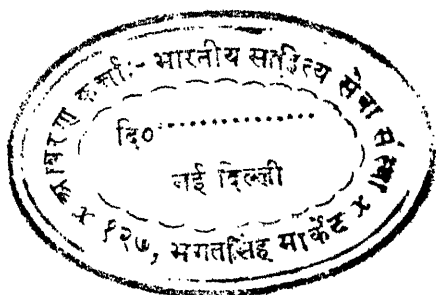 आवरण कर्त्ता:- भारतीय साहित्य सेवा संस्था
दि०..................
नई दिल्ली
x १२७, भगतसिंह मार्केट x